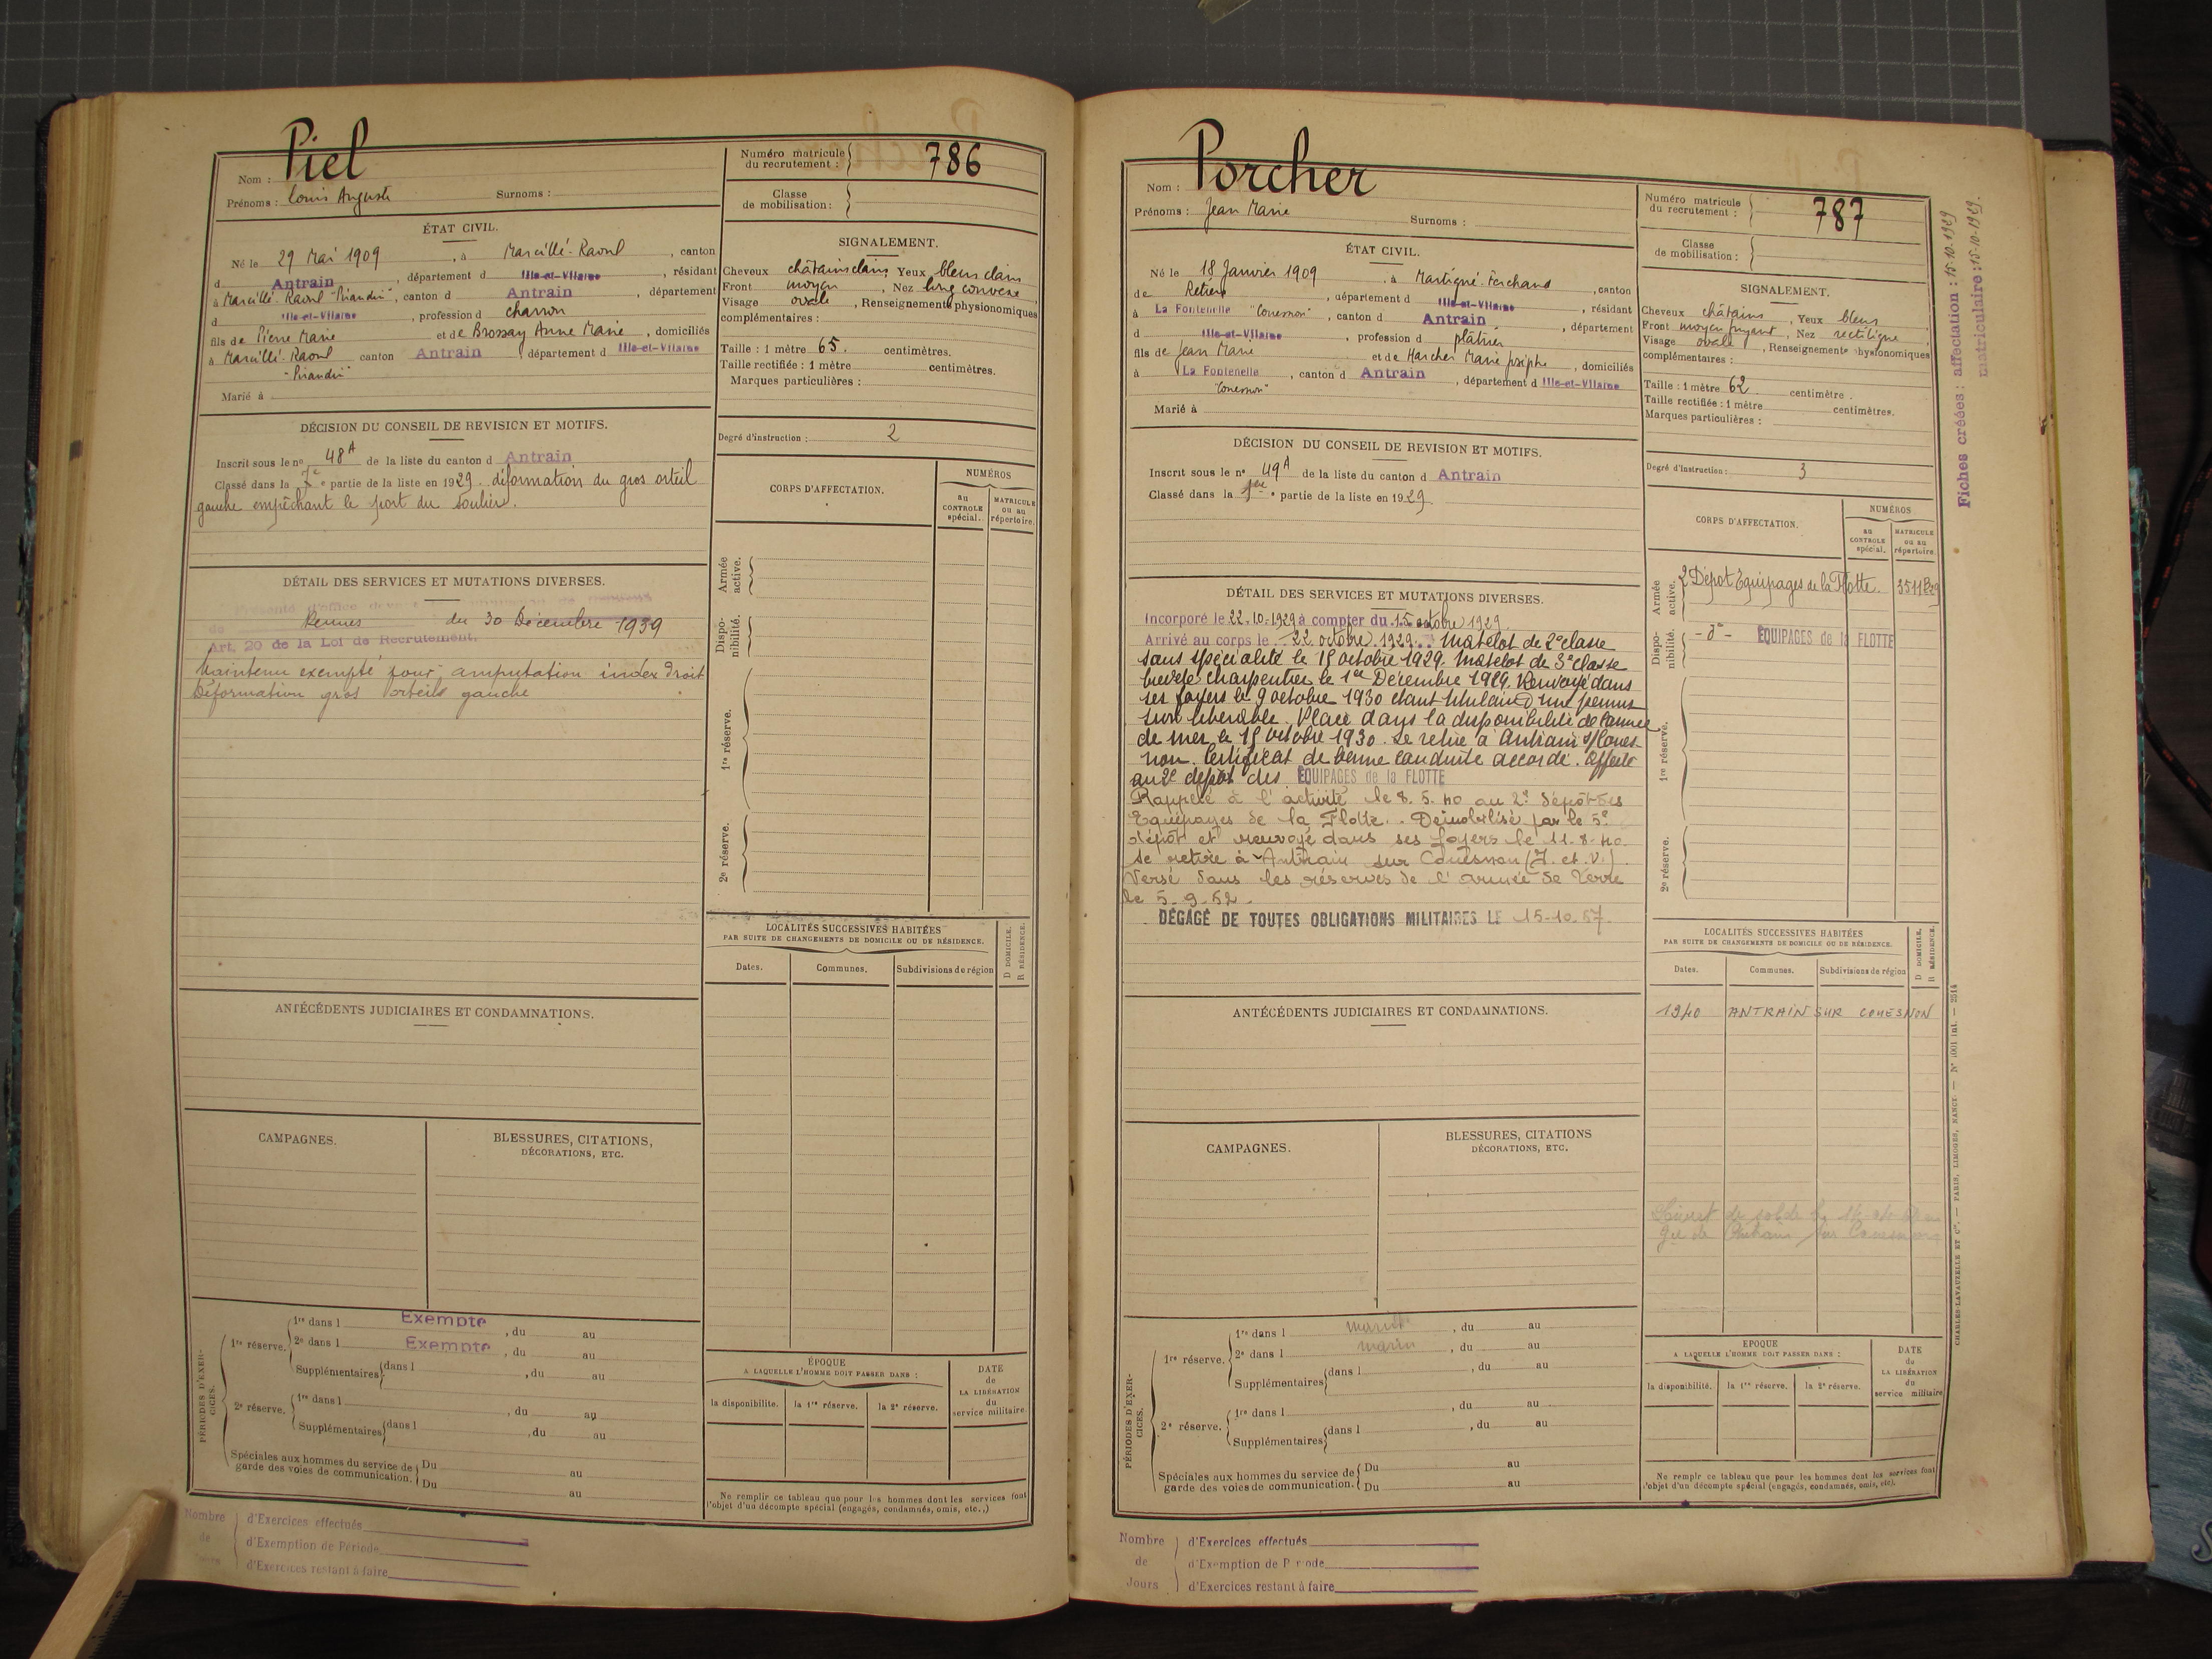 Nom : Piel
Prénoms : Louis Auguste Surnoms :
Numéro matricule
du recrutement : 786
Classe
de mobilisation :
ÉTAT CIVIL.
Né le 29 Mai 1909, à Marcillé-Raoul, canton
d Antrain, département d Ille-et-Vilaine, résidant
à Marcillé-Raoul, canton d Antrain, département
d Ille-et-Vilaine, profession d charron
fils de Pierre Marie et de Brossay Anne Marie, domiciliés
à Marcillé-Raoul canton Antrain, département d Ille-et-Vilaine
Marié à
SIGNALEMENT.
Cheveux châtains clairs Yeux bleus clairs
Front moyen, Nez long convexe
Visage ovale, Renseignements physionomiques
complémentaires :
Taille : 1 mètre 65. centimètres.
Taille rectifiée : 1 mètre centimètres.
Marques particulières :
Degré d'instruction : 2
DÉCISION DU CONSEIL DE REVISION ET MOTIFS.
Inscrit sous le nº 48A de la liste du canton d Antrain
Classé dans la e partie de la liste en 1929. déformation du gros orteil
gauche empêchant le port du soulier.
CORPS D'AFFECTATION.
NUMÉROS
au
CONTROLE
spécial.
MATRICULE
ou au
répertoire.
Armée
active.
Dispo-
nibilité.
1re réserve.
2e réserve.
DÉTAIL DES SERVICES ET MUTATIONS DIVERSES.
Présenté d'office
de Rennes du 30 Décembre 1939
Art. 20 de la Loi de Recrutement.
Maintenu exempté pour : amputation index droit
Déformation gros orteils gauche
LOCALITÉS SUCCESSIVES HABITÉES
PAR SUITE DE CHANGEMENTS DE DOMICILE OU DE RÉSIDENCE.
D DOMICILE.
R RÉSIDENCE.
Dates. Communes. Subdivisions de région
ANTÉCÉDENTS JUDICIAIRES ET CONDAMNATIONS.
CAMPAGNES.
BLESSURES, CITATIONS,
DÉCORATIONS, ETC.
PÉRIODES D'EXER-
CICES.
1re réserve. 1re dans l Exempté, du au
2e dans l Exempté, du au
Supplémentaires dans l, du au
2e réserve. 1re dans l, du au
Supplémentaires dans l, du au
Spéciales aux hommes du service de
garde des voies de communication. Du au
Du au
ÉPOQUE
A LAQUELLE L'HOMME DOIT PASSER DANS :
DATE
de
LA LIBÉRATION
du
service militaire.
la disponibilité. la 1re réserve. la 2e réserve.
Ne remplir ce tableau que pour les hommes dont les services font
l'objet d'un décompte spécial (engagés, condamnés, omis, etc.,)
Nombre d'Exercices effectués
de d'Exemption de Période
d'Exercices restant à faire
Nom : Porcher
Prénoms : Jean Marie Surnoms :
Numéro matricule
du recrutement : 787
Classe
de mobilisation :
ÉTAT CIVIL.
Né le 18 Janvier 1909, à Martigné-Ferchaud, canton
de Retiers, département d Ille-et-Vilaine, résidant
à La Fontenelle "Couesnon", canton d Antrain, département
d Ille-et-Vilaine, profession d plâtrier
fils de Jean Marie et de Harcher Marie Josèphe, domiciliés
à La Fontenelle, canton d Antrain, département d Ille-et-Vilaine
"Couesnon"
Marié à
SIGNALEMENT.
Cheveux châtains, Yeux bleus
Front moyen fuyant, Nez rectiligne
Visage ovale, Renseignements physionomiques
complémentaires :
Taille : 1 mètre 62 centimètre.
Taille rectifiée : 1 mètre centimètres.
Marques particulières :
Degré d'instruction : 3
Fiches créées : affectation : 15-10-1929
matriculaire : 15-10-1929.
DÉCISION DU CONSEIL DE REVISION ET MOTIFS.
Inscrit sous le nº 49A de la liste du canton d Antrain
Classé dans la 1ère partie de la liste en 1929
CORPS D'AFFECTATION.
NUMÉROS
au
CONTROLE
spécial.
MATRICULE
ou au
répertoire.
Armée
active. 2 Dépôt Equipages de la Flotte.
Dispo-
nibilité. - do - EQUIPAGES de la FLOTTE
1re réserve.
2e réserve.
DÉTAIL DES SERVICES ET MUTATIONS DIVERSES.
Incorporé le 22-10-1929 à compter du 15 octobre 1929.
Arrivé au corps le 22 octobre 1929. Matelot de 2e classe
sans spécialité le 15 octobre 1929. Matelot de 3e classe
breveté charpentier le 1er Décembre 1929. Renvoyé dans
ses foyers le 9 octobre 1930 étant titulaire d'une permis-
sion libérable. Placé dans la disponibilité de l'armée
de mer le 15 octobre 1930. Se retire à Antrain s/Coues-
non. Certificat de bonne conduite accordé. Affecté
au 2e dépôt des EQUIPAGES de la FLOTTE
Rappelé à l'activité le 8.5.40 au 2e dépôt des
Equipages de la Flotte. Démobilisé par le 5e
dépôt et renvoyé dans ses foyers le 11-8-40.
Se retire à Antrain sur Couesnon (I. et V.).
Versé dans les réserves de l'armée de Terre
le 5-9-52.
DÉGAGÉ DE TOUTES OBLIGATIONS MILITAIRES LE 15-10-57
LOCALITÉS SUCCESSIVES HABITÉES
PAR SUITE DE CHANGEMENTS DE DOMICILE OU DE RÉSIDENCE.
D DOMICILE.
R RÉSIDENCE.
Dates. Communes. Subdivisions de région
1940 ANTRAIN SUR COUESNON
ANTÉCÉDENTS JUDICIAIRES ET CONDAMNATIONS.
CAMPAGNES.
BLESSURES, CITATIONS
DÉCORATIONS, ETC.
Livret de solde
PÉRIODES D'EXER-
CICES.
1re réserve. 1re dans l marin, du au
2e dans l marin, du au
Supplémentaires dans l, du au
2e réserve. 1re dans l, du au
Supplémentaires dans l, du au
Spéciales aux hommes du service de
garde des voies de communication. Du au
Du au
EPOQUE
A LAQUELLE L'HOMME DOIT PASSER DANS :
DATE
de
LA LIBÉRATION
du
service militaire
la disponibilité. la 1re réserve. la 2e réserve.
Ne remplir ce tableau que pour les hommes dont les services font
l'objet d'un décompte spécial (engagés, condamnés, omis, etc).
CHARLES-LAVAUZELLE ET Cie. — PARIS, LIMOGES, NANCY.
Nombre d'Exercices effectués
de d'Exemption de Période
Jours d'Exercices restant à faire